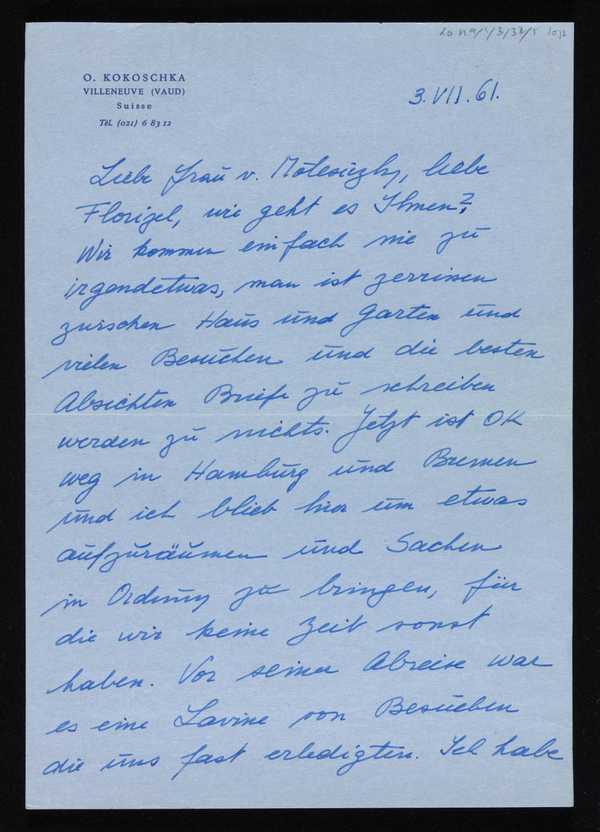 O. KOKOSCHKA
VILLENEUVE (VAUD)
Suisse
Tél. (021) 6 83 12
3. VII. 61.
Liebe Frau v. Motesiczky, liebe
Florizel, wie geht es Ihnen?
Wir kommen einfach nie zu
irgendetwas, man ist zerrissen
zwischen Haus und Garten und
vielen Besuchen und die besten
Absichten Briefe zu schreiben
werden zu nichts. Jetzt ist OK
weg in Hamburg und Bremen
und ich blieb hier um etwas
aufzuräumen und Sachen
in Ordnung zu bringen, für
die wir keine Zeit sonst
haben. Vor seiner Abreise war
es eine Lavine von Besuchen
die uns fast erledigten. Ich habe